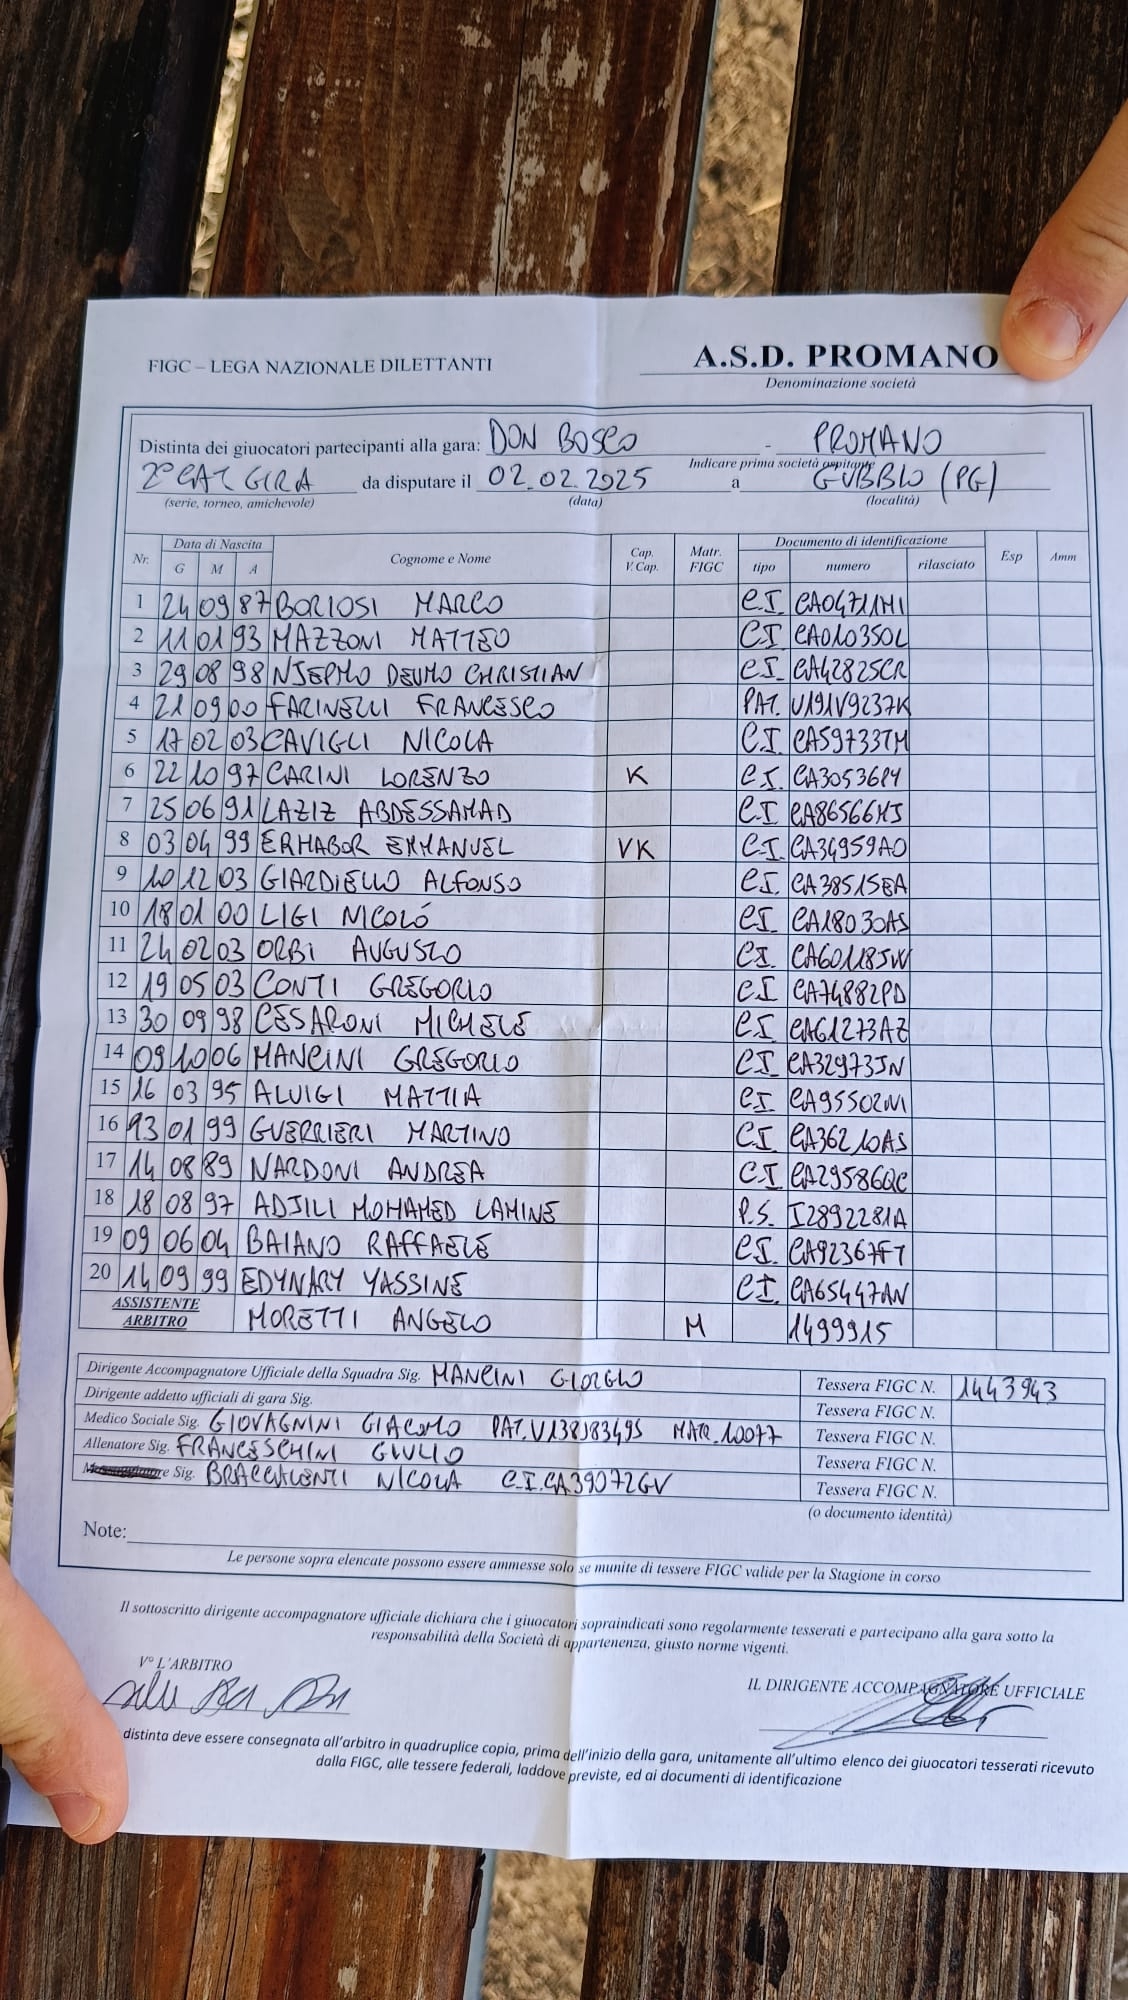 FIGC – LEGA NAZIONALE DILETTANTI A.S.D. PROMANO
Denominazione società
Distinta dei giuocatori partecipanti alla gara: DON BOSCO - PROMANO
Indicare prima società ospitante
2° CAT GIR A da disputare il 02.02.2025 a GUBBIO (PG)
(serie, torneo, amichevole) (data) (località)
Nr. Data di Nascita Cognome e Nome Cap. V. Cap. Matr. FIGC Documento di identificazione Esp Amm
G M A tipo numero rilasciato
1 24 09 87 BORIOSI MARCO C.I. CA04711MI
2 11 01 93 MAZZONI MATTEO C.I. CA01035OL
3 29 08 98 NJEPMO DEUMO CHRISTIAN C.I. CA42825CR
4 21 09 00 FARINELLI FRANCESCO PAT. U191V9237K
5 17 02 03 CAVIGLI NICOLA C.I. CA59733TM
6 22 10 97 CARINI LORENZO K C.I. CA30536PY
7 25 06 91 LAZIZ ABDESSAMAD C.I. CA86566KJ
8 03 04 99 ERHABOR EMMANUEL VK C.I. CA34959AO
9 10 12 03 GIARDIELLO ALFONSO C.I. CA38515EA
10 18 01 00 LIGI NICOLÓ C.I. CA18030AS
11 24 02 03 ORBI AUGUSTO C.I. CA60118JW
12 19 05 03 CONTI GREGORIO C.I. CA74882PD
13 30 09 98 CESARONI MICHELE C.I. CA61273AZ
14 09 10 06 MANCINI GREGORIO C.I. CA32973JN
15 16 03 95 ALUIGI MATTIA C.I.
16 01 99 GUERRIERI MARTINO C.I. CA36210AS
17 14 08 89 NARDONI ANDREA C.I. CA29586QC
18 18 08 97 ADJILI MOHAMED LAMINE P.S. I2892281A
19 09 06 04 BAIANO RAFFAELE C.I. CA92367FT
20 14 09 99 EDYNARY YASSINE C.I. CA65447AN
ASSISTENTE ARBITRO MORETTI ANGELO M 1499915
Dirigente Accompagnatore Ufficiale della Squadra Sig. MANCINI GIORGIO Tessera FIGC N. 1443943
Dirigente addetto ufficiali di gara Sig. Tessera FIGC N.
Medico Sociale Sig. GIOVAGNINI GIACOMO PAT. MAR. 10077 Tessera FIGC N.
Allenatore Sig. FRANCESCHINI GIULIO Tessera FIGC N.
Sig. BRACCALENTI NICOLA C.I. CA39072GV Tessera FIGC N.
(o documento identità)
Note:
Le persone sopra elencate possono essere ammesse solo se munite di tessere FIGC valide per la Stagione in corso
Il sottoscritto dirigente accompagnatore ufficiale dichiara che i giuocatori sopraindicati sono regolarmente tesserati e partecipano alla gara sotto la
responsabilità della Società di appartenenza, giusto norme vigenti.
V° L'ARBITRO IL DIRIGENTE ACCOMPAGNATORE UFFICIALE
distinta deve essere consegnata all'arbitro in quadruplice copia, prima dell'inizio della gara, unitamente all'ultimo elenco dei giuocatori tesserati ricevuto
dalla FIGC, alle tessere federali, laddove previste, ed ai documenti di identificazione